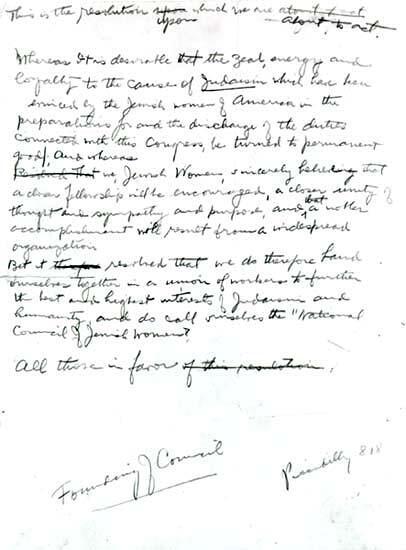 This is the resolution upon which we are about to act
upon about to act.
Whereas It is desirable that the zeal, energy and
loyalty to the cause of Judaism which has been
evinced by the Jewish women of America in the
preparations for and the discharge of the duties
connected with this Congress, be turned to permanent
good, And whereas
Resolved That we, Jewish Women, sincerely believing that
a closer fellowship will be encouraged, a closer unity of
thought and sympathy and purpose, and that a nobler
accomplishment will result from a widespread
organization
Be it therefore resolved that we do therefore band
ourselves together in a union of workers to further
the best and highest interests of Judaism and
humanity and do call ourselves the "National
Council of Jewish Women"
All those in favor of this resolution,
Founding of Council
Piccadilly 818